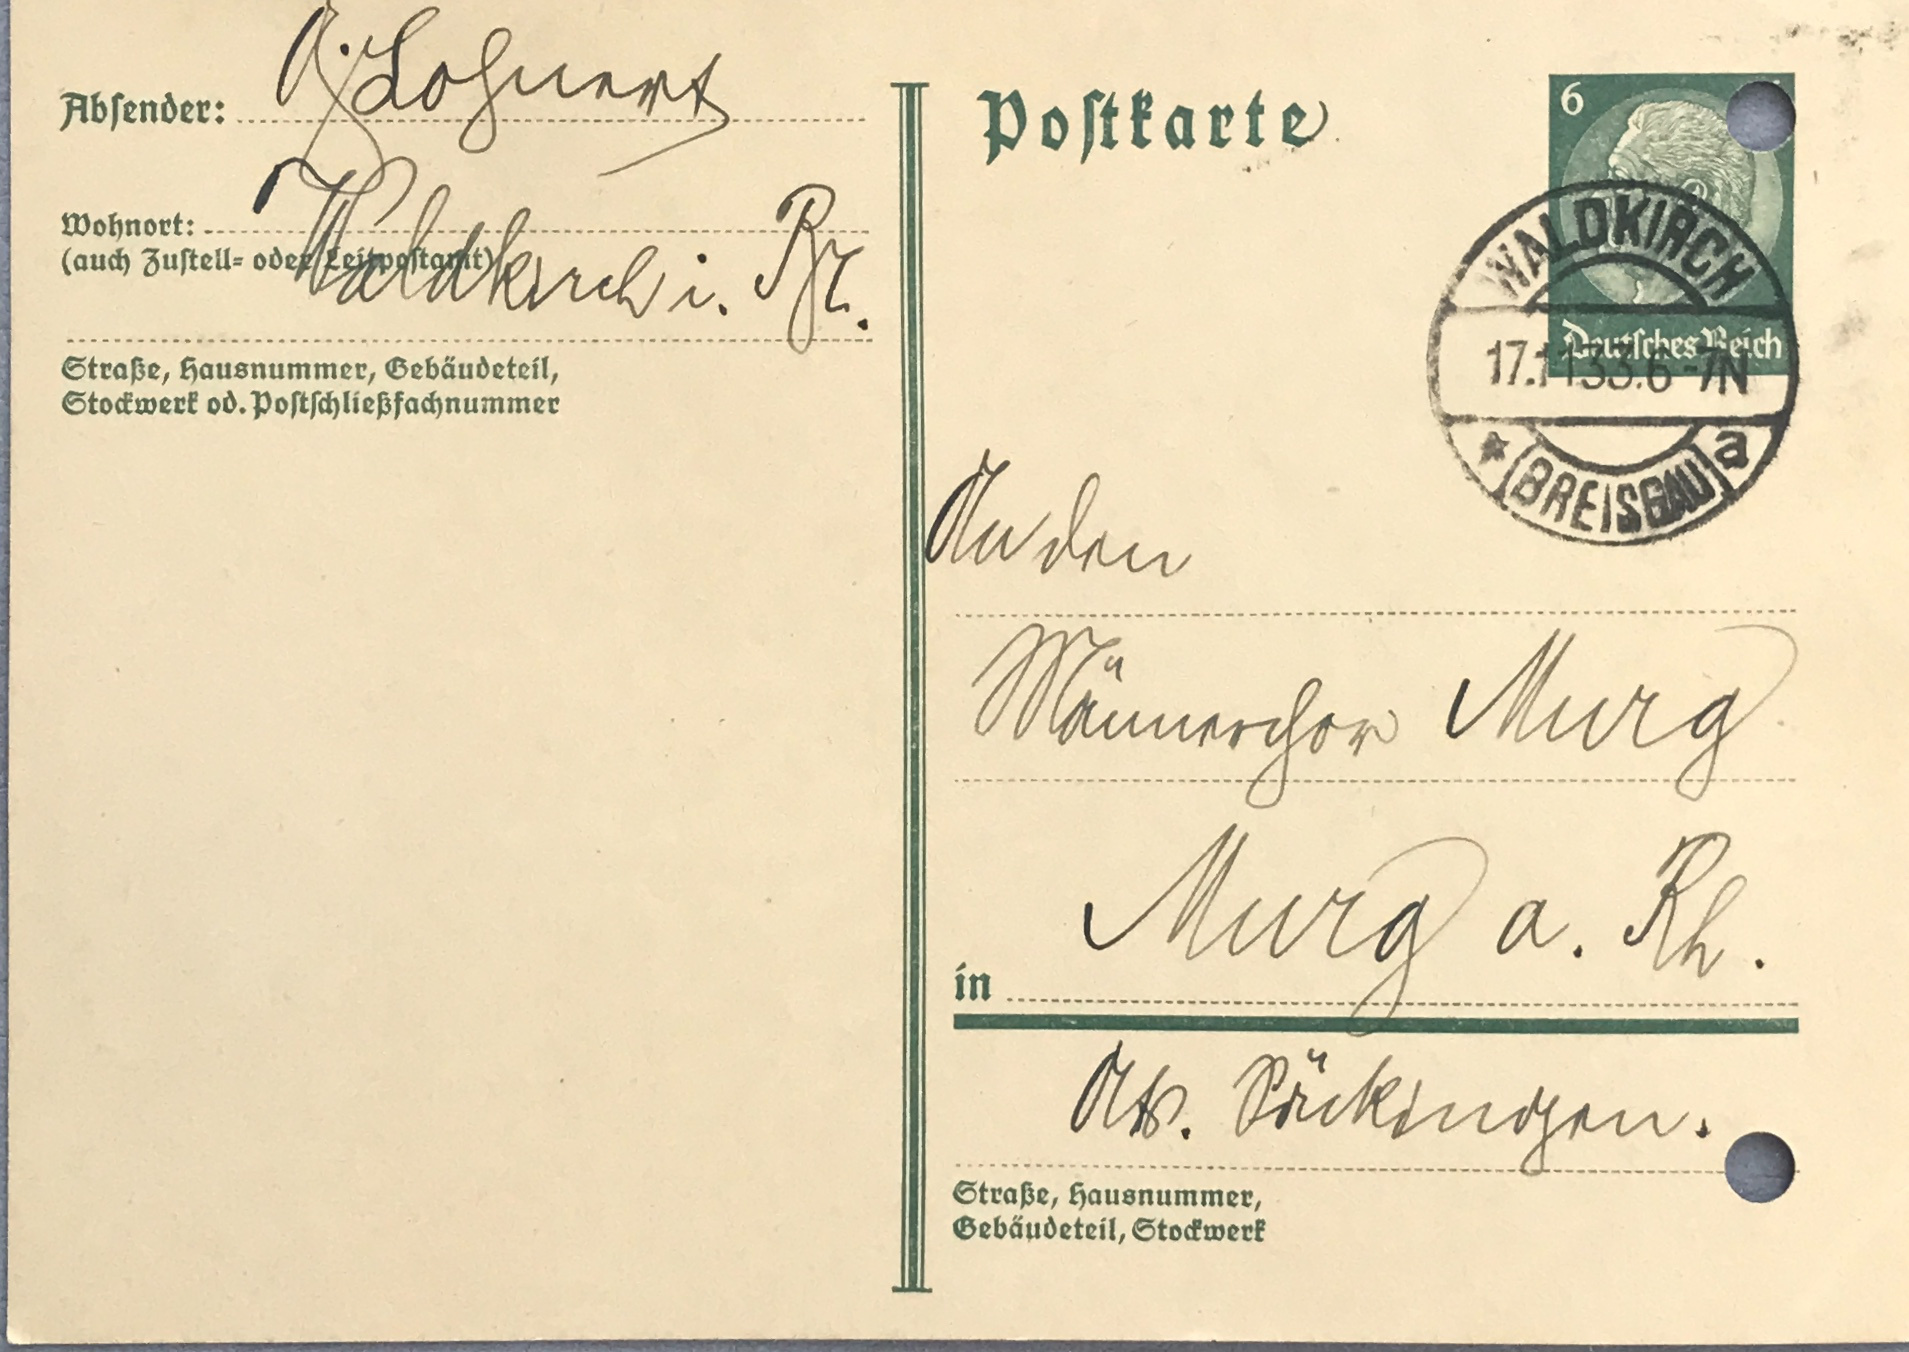 Absender: A. Lohnert
Wohnort: Waldkirch i. Br.
(auch Zustell= oder Leitpostamt)
Straße, Hausnummer, Gebäudeteil,
Stockwerk od. Postschließfachnummer
Postkarte
6
Deutsches Reich
WALDKIRCH
17.11.33.6-7N
* (BREISGAU) a
An den
Männerchor Murg
in Murg a. Rh.
Säckingen.
Straße, Hausnummer,
Gebäudeteil, Stockwerk